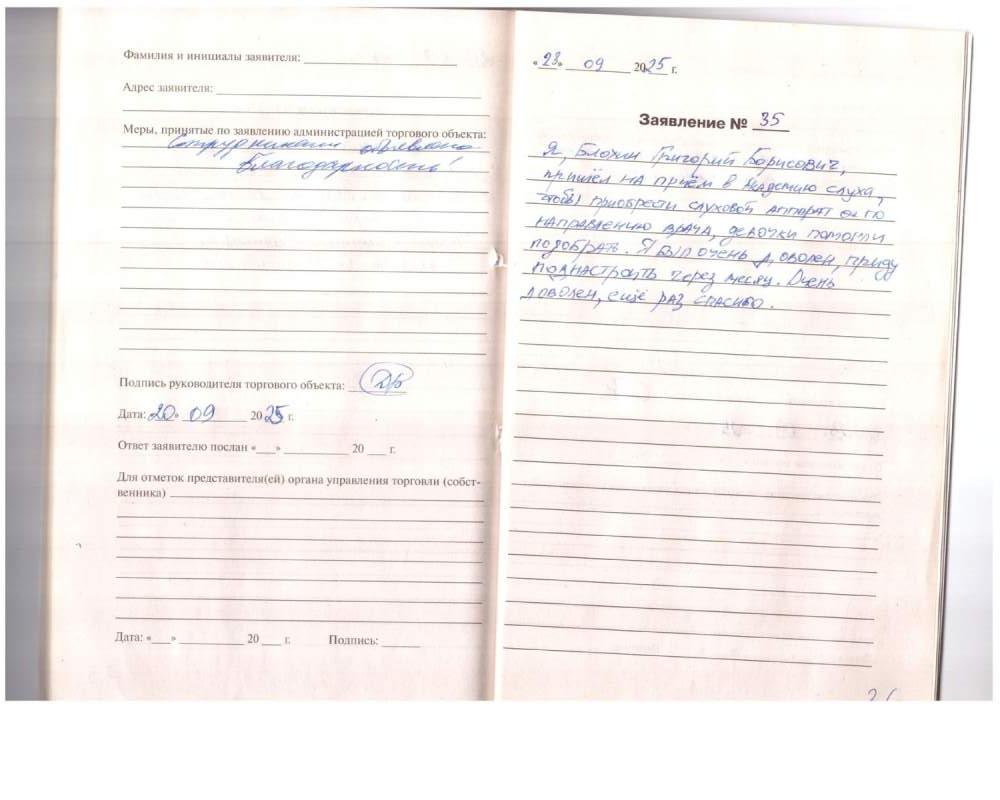 Фамилия и инициалы заявителя:
Адрес заявителя:
Меры, принятые по заявлению администрацией торгового объекта:
Сотрудникам объявлена
благодарность!
Подпись руководителя торгового объекта:
Дата: 20» 09 2025 г.
Ответ заявителю послан «___» ________ 20 ___ г.
Для отметок представителя(ей) органа управления торговли (собст-
венника)
Дата: «___» ________ 20 ___ г. Подпись:
«23» 09 2025 г.
Заявление № 35
Я, Блохин Григорий Борисович,
пришёл на приём в Академию слуха,
чтобы приобрести слуховой аппарат по
направлению врача, девочки помогли
подобрать. Я был очень доволен, приду
поднастроить через месяц. Очень
доволен, ещё раз спасибо.